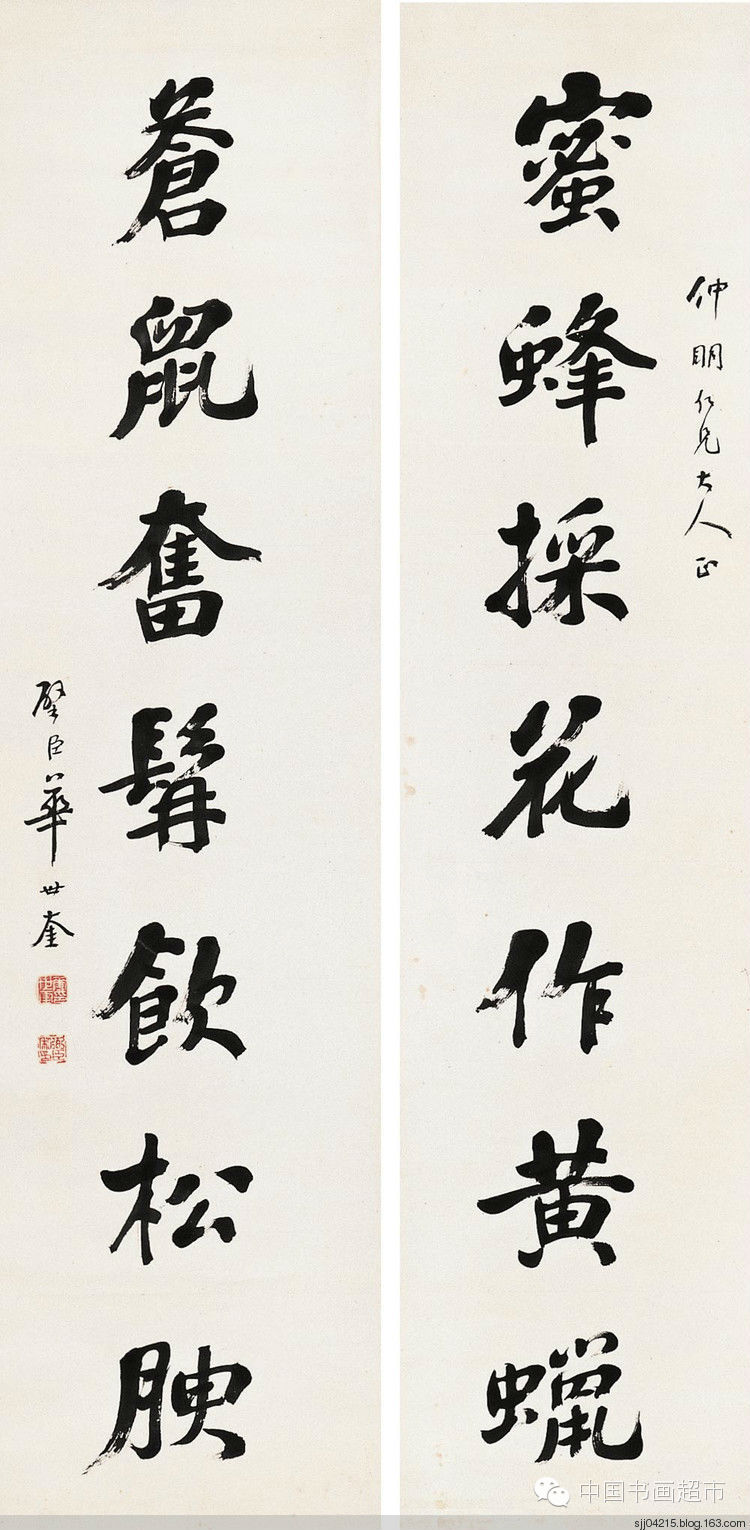 蜜蜂採花作黄蠟
仲明仁兄大人正
蒼鼠奮髯飲松腴
璧臣華世奎
中国书画超市
sjj04215.blog.163.com